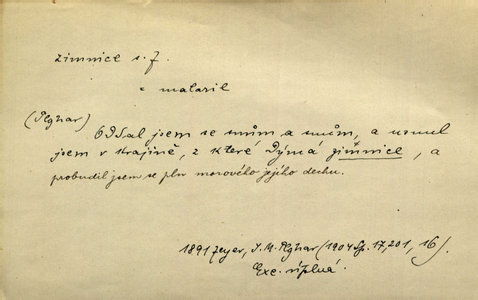 zimnice s. f.
= malaril
(Plojhar) Oddal jsem se snům a snům, a usnul
jsem v krajině, z které dýmá zimnice, a
probudil jsem se pln morového jejího dechu.
1891 Zeyer, J. M. Plojhar (1904 Sp. 17, 201, 16).
Exc. úplná.